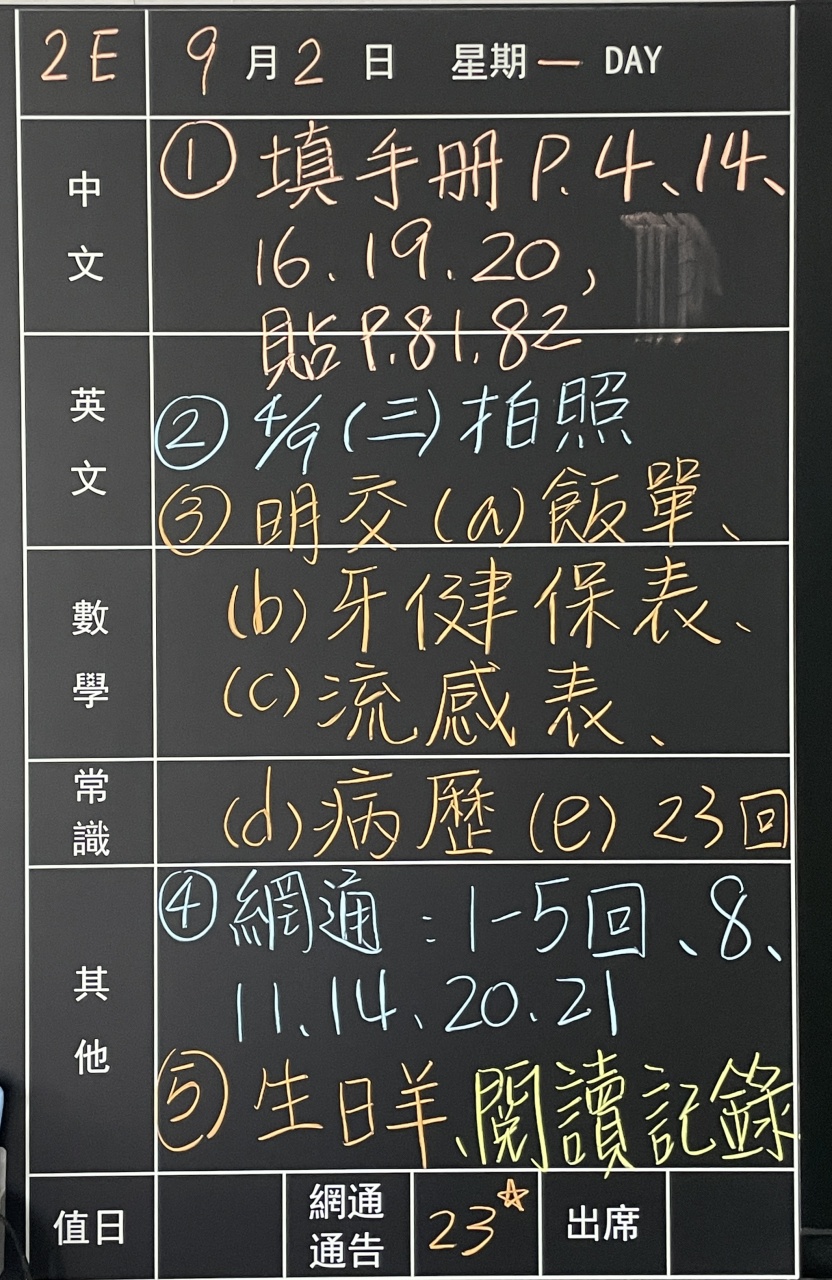 2E 9月2日 星期一 DAY
中文
① 填手册 P.4、14、
16.19.20,
貼P.81.82
英文
② 4/9(三)拍照
③ 明交(a)飯單、
數學
(b)牙健保表、
(c)流感表、
常識
(d)病歷(e)23回
其他
④ 網通:1-5回、8、
11、14、20.21
⑤ 生日羊、閱讀記錄
值日 網通通告 23☆ 出席